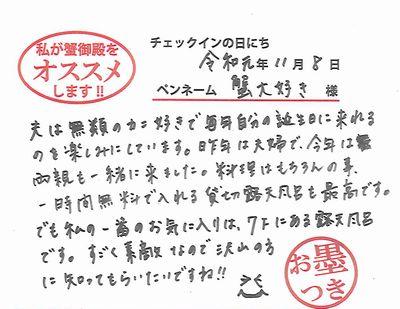 私が蟹御殿を
オススメ
します!!
チェックインの日にち
令和元年11月8日
ペンネーム 蟹大好き 様
夫は無類のカニ好きで毎年自分の誕生日に来れる
のを楽しみにしています。昨年は夫婦で、今年は
両親も一緒に来ました。料理はもちろんの事、
一時間無料で入れる貸切露天風呂も最高です。
でも私の一番のお気に入りは、7Fにある露天風呂
です。すごく素敵なので沢山の方
に知ってもらいたいですね!!
お墨
つき